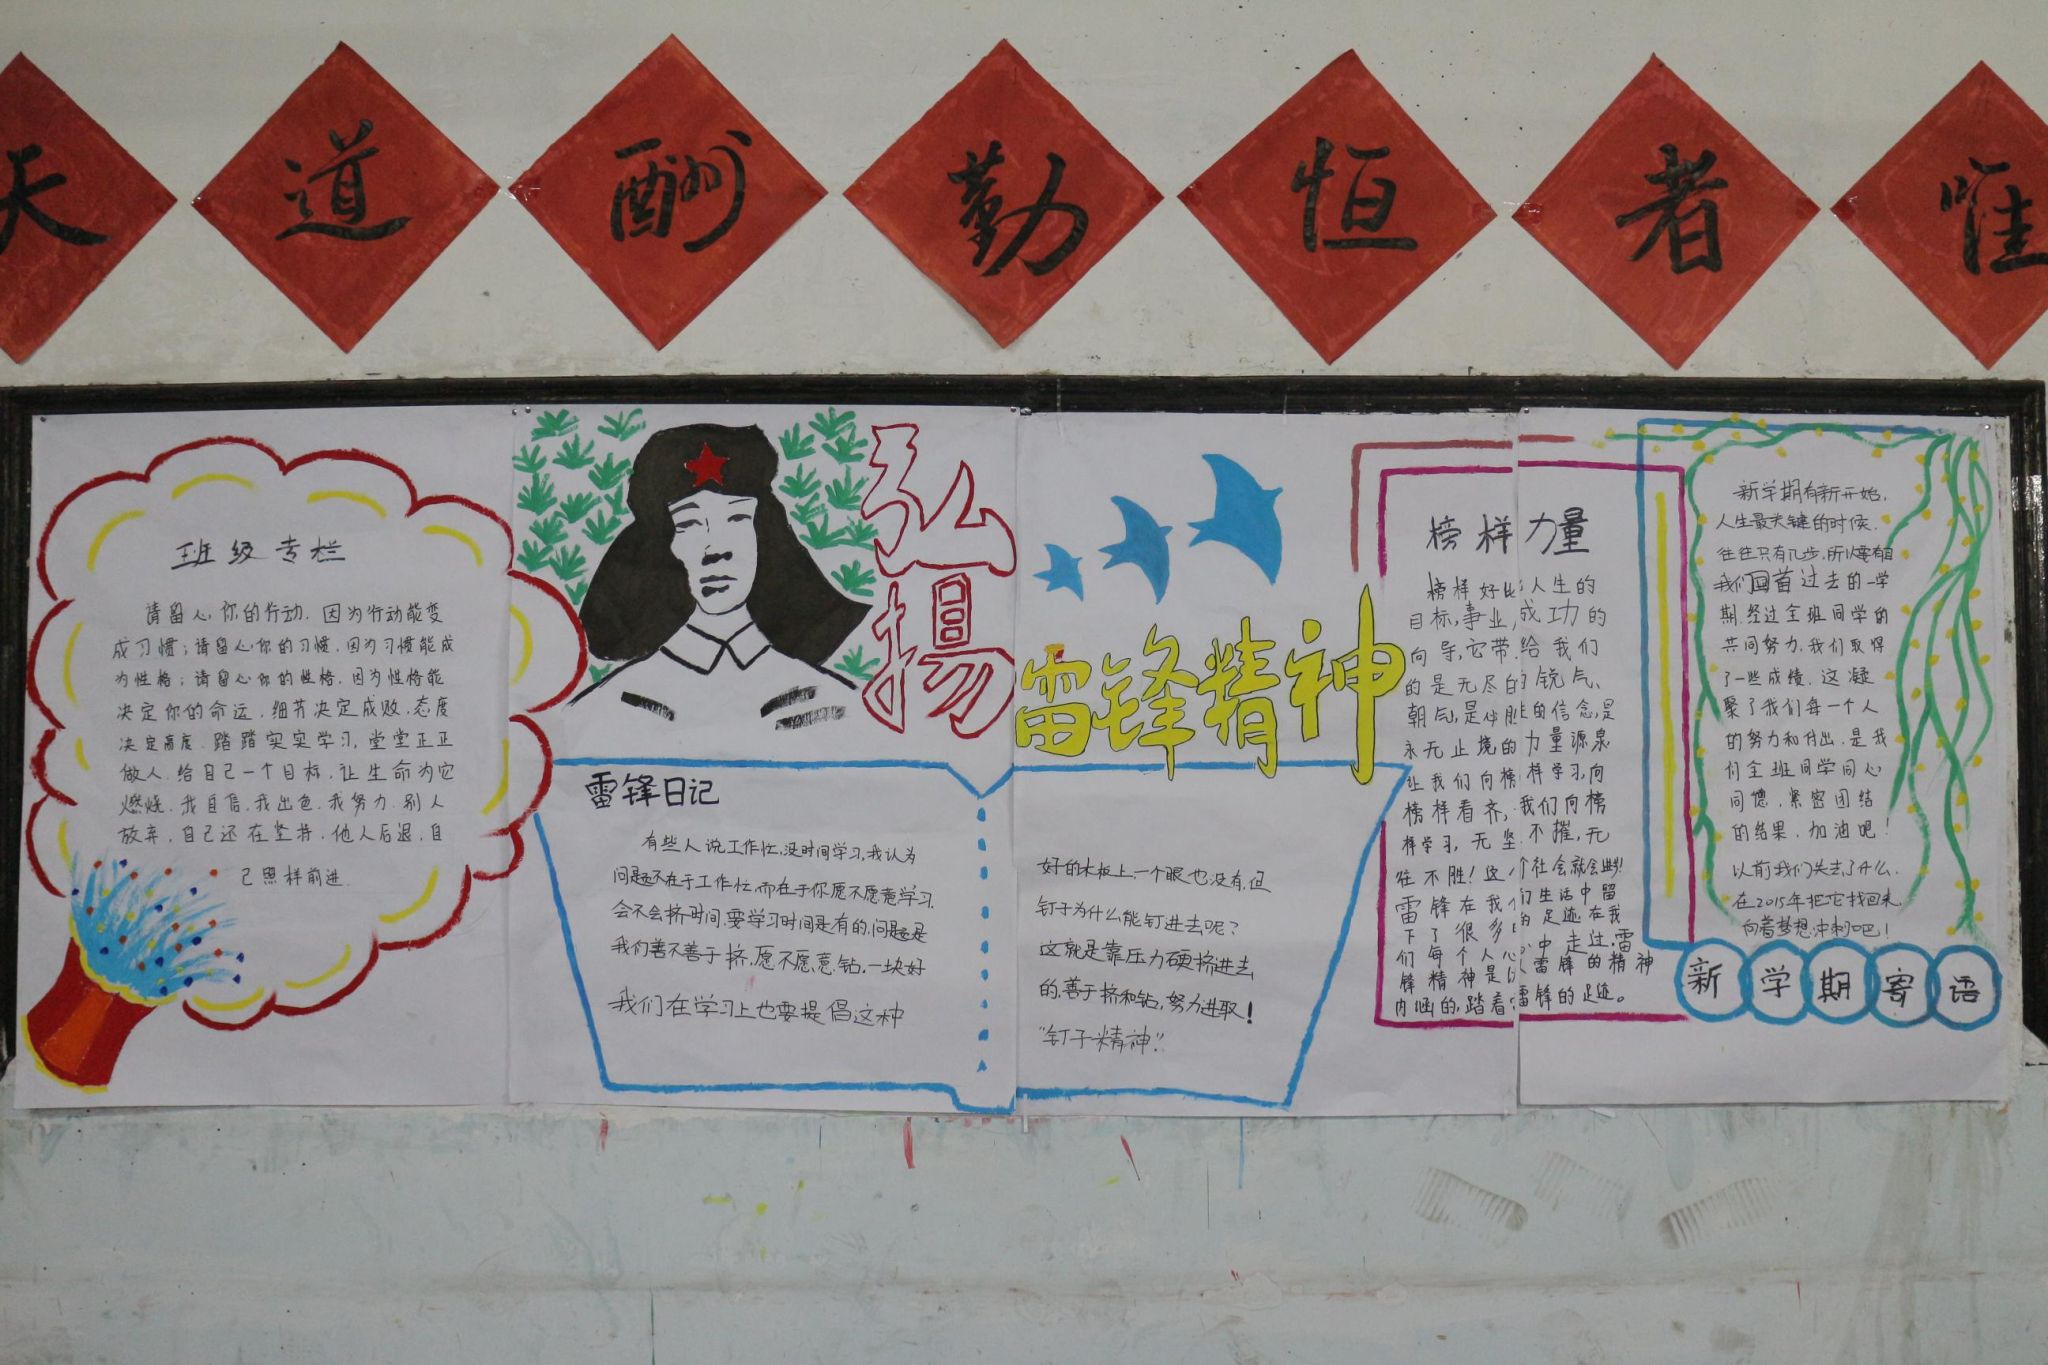 天道酬勤恒者惟
班级专栏
请留心你的行动,因为行动能变
成习惯;请留心你的习惯,因为习惯能成
为性格;请留心你的性格,因为性格能
决定你的命运,细节决定成败,态度
决定高度.踏踏实实学习,堂堂正正
做人,给自己一个目标,让生命为它
燃烧.我自信,我出色,我努力.别人
放弃,自己还在坚持,他人后退,自
己照样前进.
弘
揚
雷锋精神
雷锋日记
有些人说工作忙,没时间学习,我认为
问题不在于工作忙,而在于你愿不愿意学习,
会不会挤时间,要学习时间是有的,问题是
我们善不善于挤,愿不愿意钻,一块好
我们在学习上也要提倡这种
好的木板上,一个眼也没有,但
钉子为什么能钉进去呢?
这就是靠压力硬挤进去
的,善于挤和钻,努力进取!
“钉子精神”.
榜样力量
榜样好比人生的
目标,事业成功的
向导,它带给我们
的是无尽的锐气、
朝气,是必胜的信念,是
永无止境的力量源泉
让我们向榜样学习,向
榜样看齐,我们向榜
样学习,无坚不摧,无
往不胜!这个社会就会
雷锋在我们生活中留
下了很多的足迹在我
们每个人心中走过,雷
锋精神是雷锋的精神
内涵的,踏着雷锋的足迹。
新学期有新开始,
人生最关键的时候,
往往只有几步,所以要
我们回首过去的一学
期,经过全班同学的
共同努力,我们取得
了一些成绩,这凝
聚了我们每一个人
的努力和付出,是我
们全班同学同心
同德,紧密团结
的结果,加油吧!
以前我们失去了什么,
在2015年把它找回来,
向着梦想冲刺吧!
新学期寄语